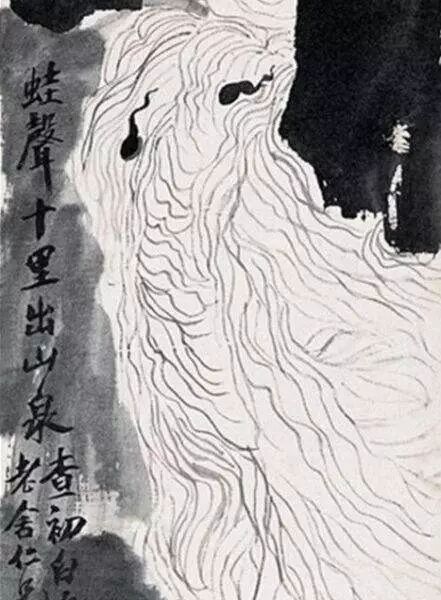 蛙聲十里出山泉
查初白
老舍仁